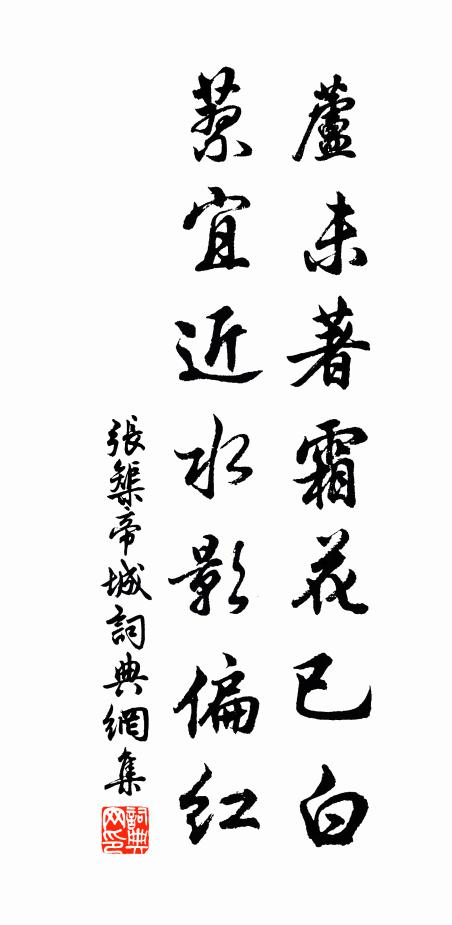 蘆未著霜花已白
蓼宜近水影偏紅
張榘帝城詞典網集
詞典網印